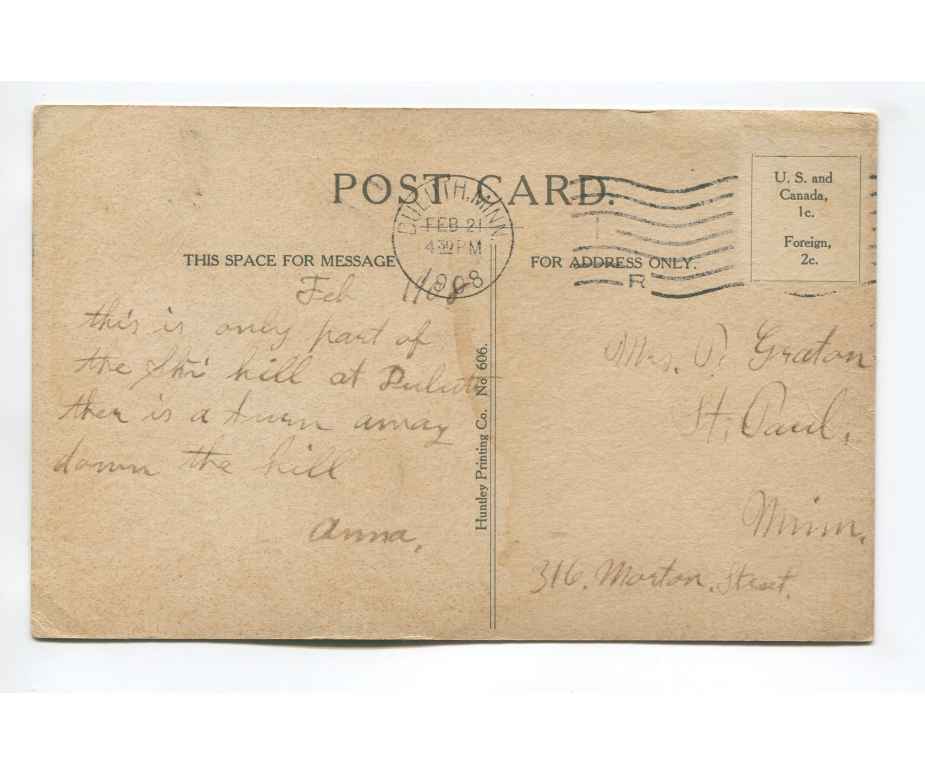 POST CARD.
DULUTH, MINN.
FEB 21
4 30 PM
1908
R
U. S. and
Canada,
1c.
Foreign,
2c.
THIS SPACE FOR MESSAGE
FOR ADDRESS ONLY.
Feb 1908
this is only part of
the Ski hill at Duluth
ther is a turn away
down the hill
Anna,
Huntley Printing Co. No 606.
Mrs. P. Graton
St. Paul,
Minn.
316. Morton. Street.